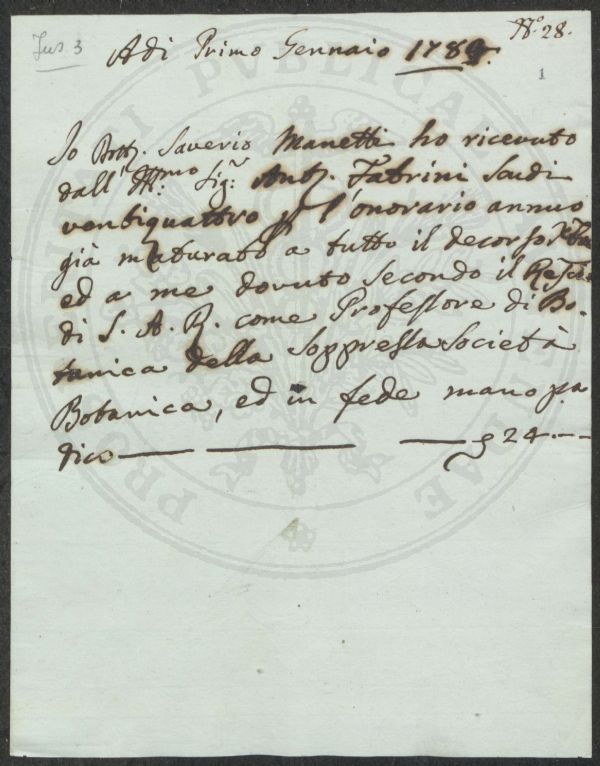 Ins. 3
N.° 28.
Adi Primo Gennaio 1784.
1
Io Dott. Saverio Manetti ho ricevuto
dall' Ill:mo Sig: Ant. Fabrini Scudi
ventiquattro p l'onorario annuo
già maturato a tutto il decorso Xbre
ed a me dovuto secondo il Rescto
di S. A. R. come Professore di Bo-
tanica della soppressa Società
Botanica, ed in fede mano pa
dico — — — 24 --